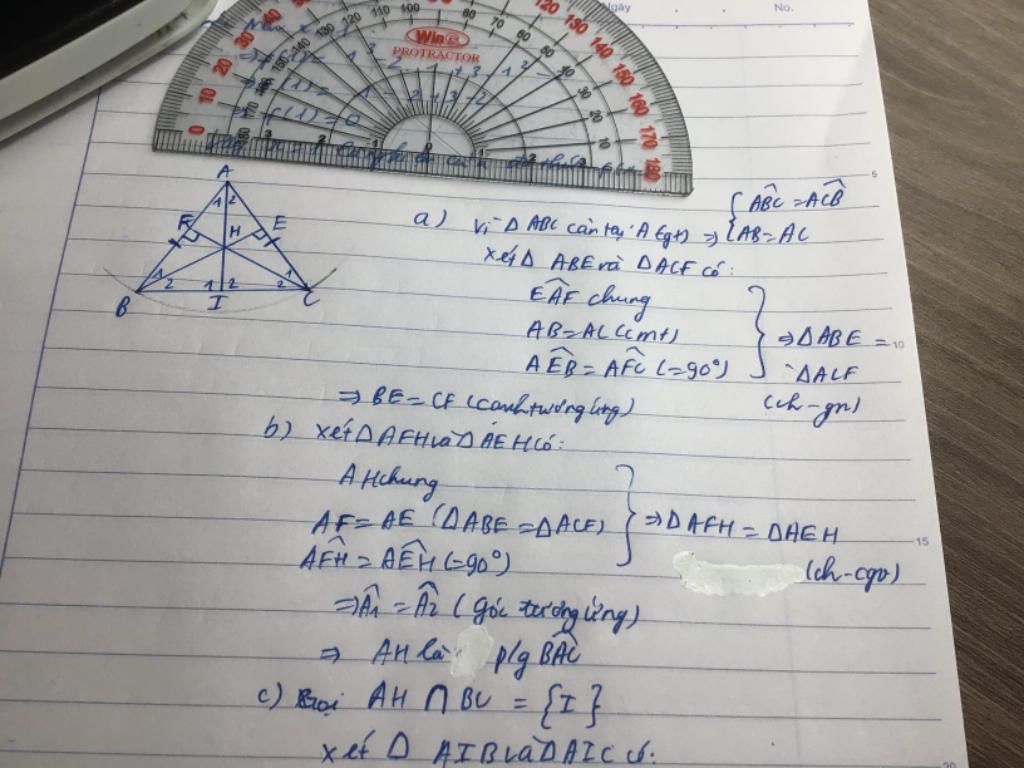 Ngày No.
Win@
PROTRACTOR
f(1) = 0
A
1 2
F E
H
1 2 1 2 2 1
B I C
a) Vì Δ ABC cân tại A (gt) ⇒ { ABC^ = ACB^
AB = AC
xét Δ ABE và Δ ACF có:
EAF^ chung
AB = AC (cmt)
AEB^ = AFC^ (= 90°)
⇒ Δ ABE = Δ ACF
(ch - gn)
⇒ BE = CF (cạnh tương ứng)
b) xét Δ AFH và Δ AEH có:
AH chung
AF = AE (Δ ABE = Δ ACF)
AFH^ = AEH^ (= 90°)
⇒ Δ AFH = Δ AEH
(ch - cgv)
⇒ A1^ = A2^ (góc tương ứng)
⇒ AH là p/g BAC^
c) Gọi AH ∩ BC = {I}
xét Δ AIB và Δ AIC có: